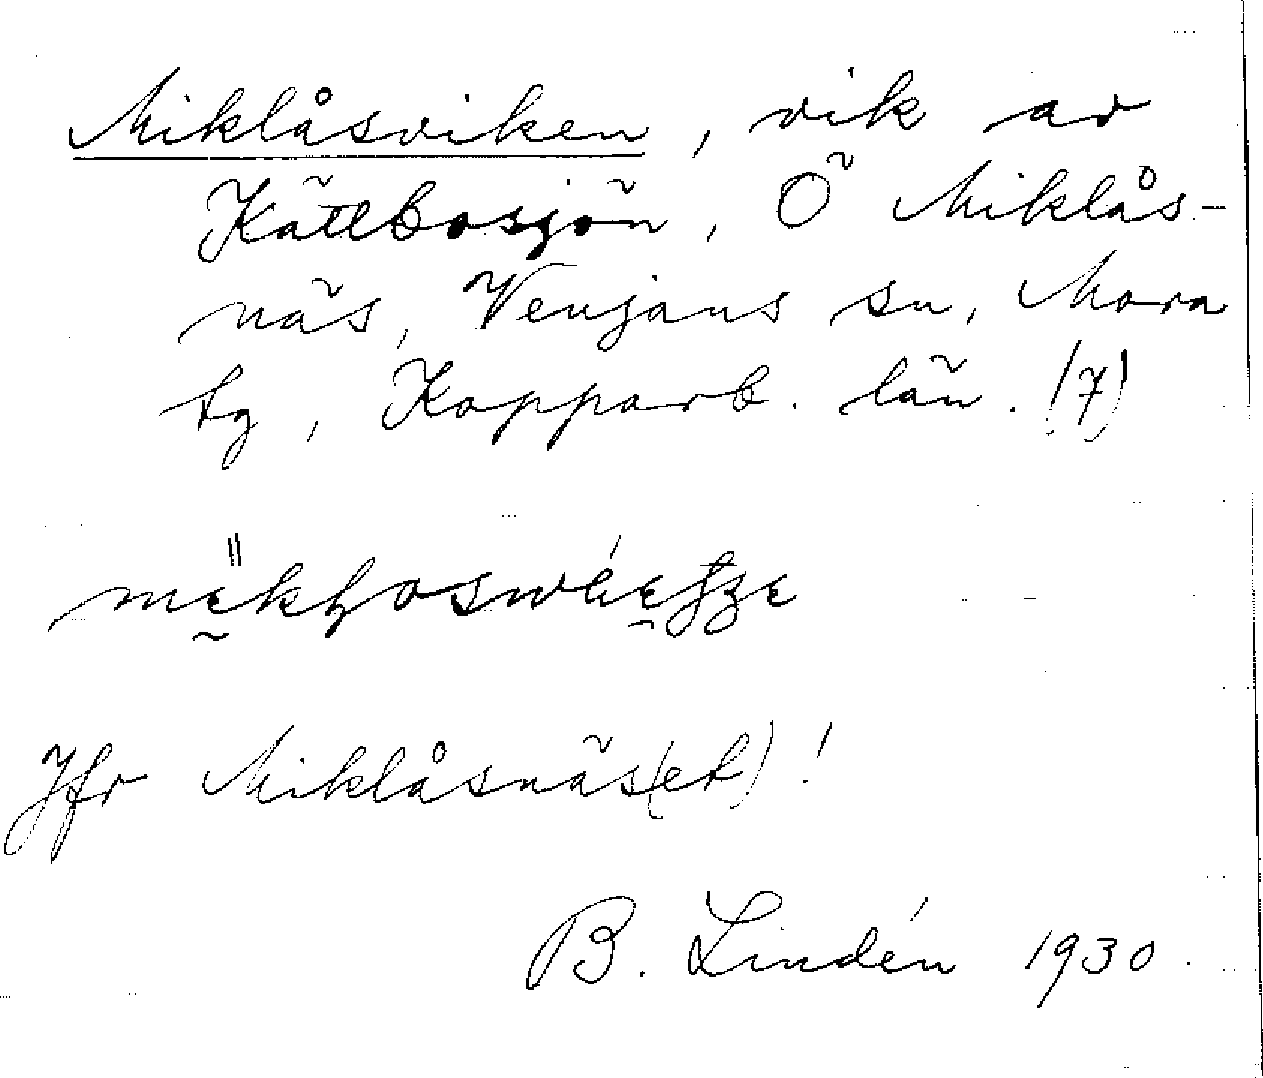 Miklåsviken, vik av
Kättbosjön, Ö Miklås-
näs, Venjans sn, Mora
tg, Kopparb. län. (7)
Jfr Miklåsnäs(et)!
B. Lindén 1930.